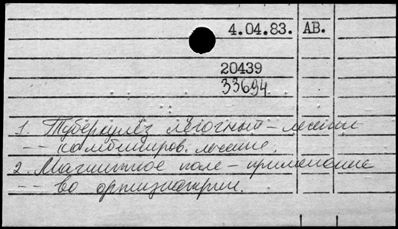 4.04.83. АВ.
20439
33694
1. Туберкулёз лёгочный – лечение
-- комбиниров. лечение.
2. Магнитное поле – применение
-- во фтизиатрии.